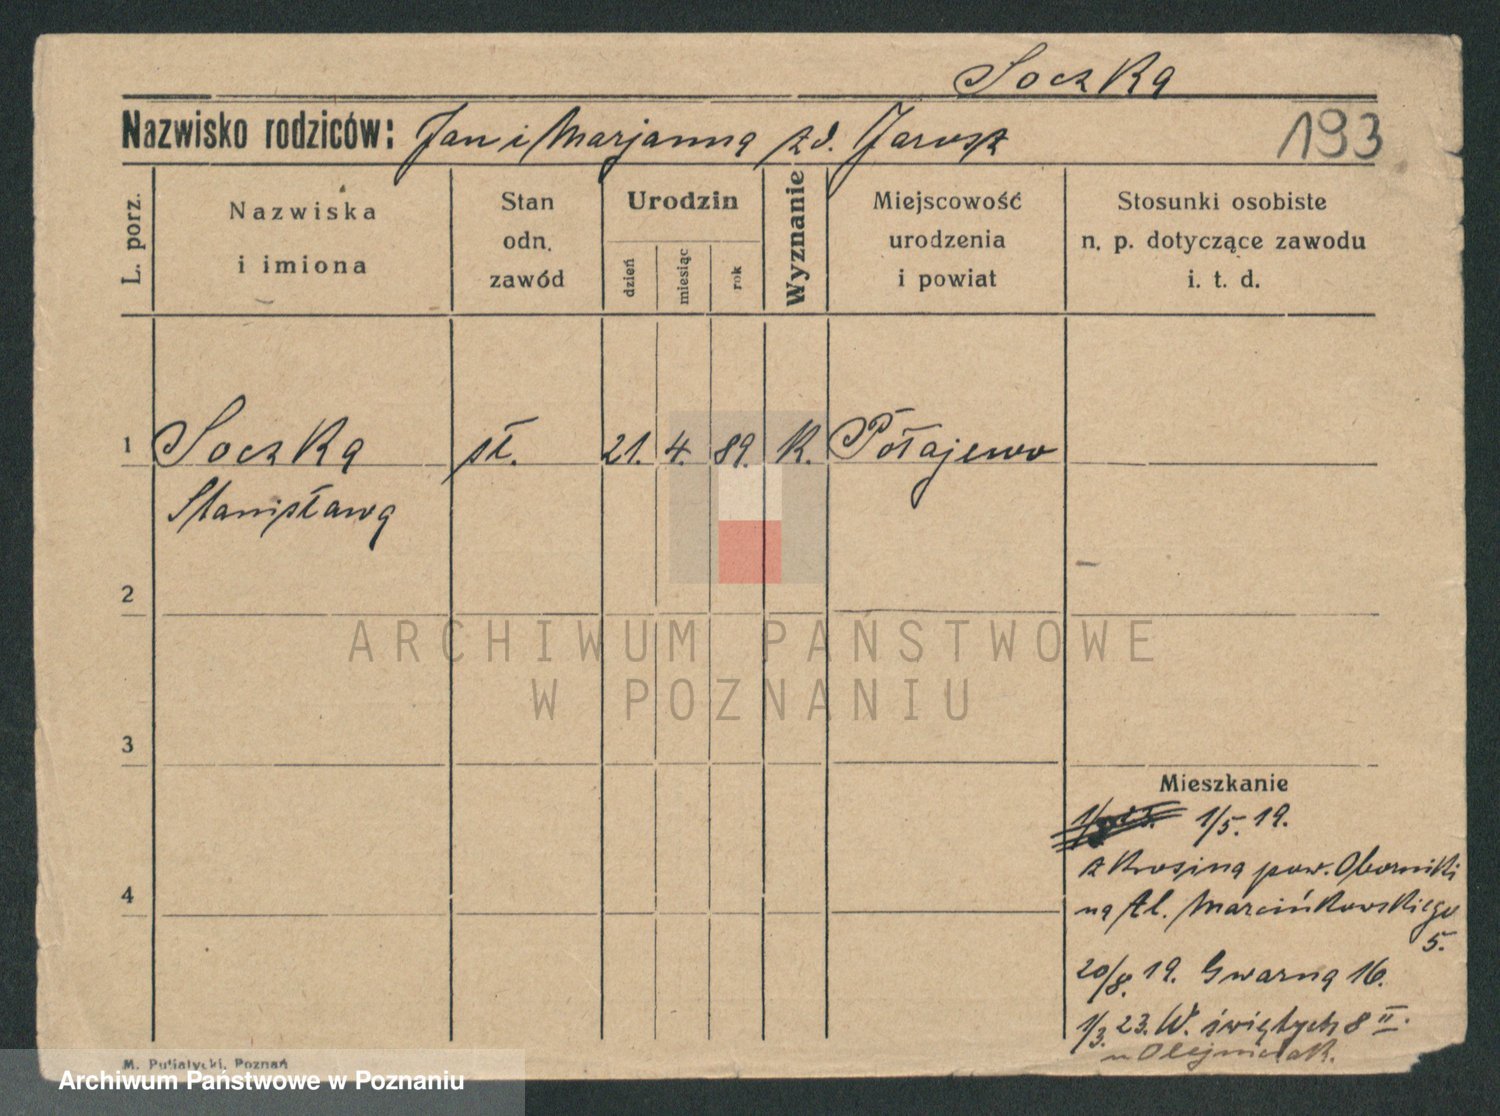 Soczka
Nazwisko rodziców: Jan i Marjanna zd. Jarosz
193
L. porz.
Nazwiska
i imiona
Stan
odn.
zawód
Urodzin
dzień
miesiąc
rok
Wyznanie
Miejscowość
urodzenia
i powiat
Stosunki osobiste
n. p. dotyczące zawodu
i. t. d.
1 Soczka sł. 21. 4. 89. K. Połajewo
Stanisława
2
ARCHIWUM PAŃSTWOWE
W POZNANIU
3
Mieszkanie
1/5. 19.
z Krosina pow. Oborniki
4
na Al. Marcinkowskiego
5.
20/8. 19. Gwarna 16.
1/3. 23. W. świętych 8 II.
u Olejniczak.
M. Putiatycki, Poznań
Archiwum Państwowe w Poznaniu